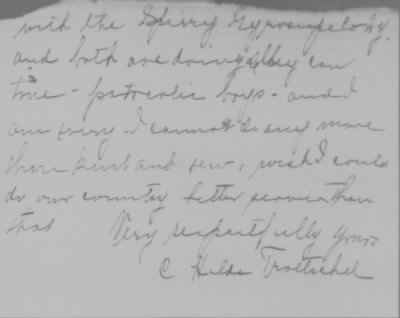 with the Sperry Gyroscope Co. N.Y.
and both are doing all they can
true - patriotic boys - and I
am sorry I cannot do any more
than knit and sew, wish I could
do our country better service than
that. Very respectfully yours
C Hilda Troetschel